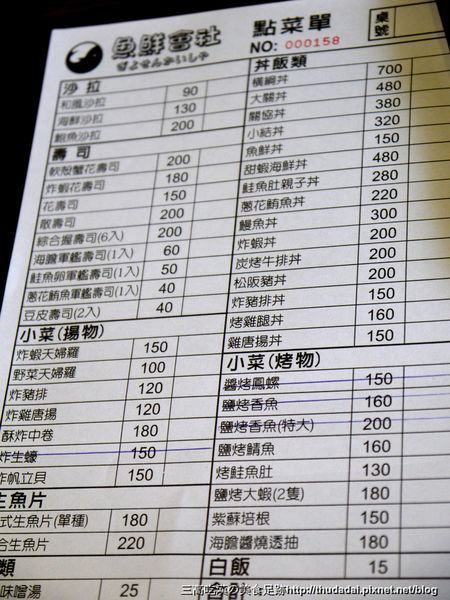 魚鮮會社
ぎょせんかいしゃ
點菜單
NO: 000158
桌號
沙拉
和風沙拉 90
海鮮沙拉 130
鮑魚沙拉 200
壽司
軟殼蟹花壽司 200
炸蝦花壽司 180
花壽司 150
散壽司 200
綜合握壽司(6入) 200
海膽軍艦壽司(1入) 60
鮭魚卵軍艦壽司(1入) 50
蔥花鮪魚軍艦壽司(1入) 40
豆皮壽司(2入) 40
小菜(揚物)
炸蝦天婦羅 150
野菜天婦羅 100
炸豬排 120
炸雞唐揚 120
酥炸中卷 180
炸生蠔 150
炸帆立貝 150
生魚片
式生魚片(單種) 180
合生魚片 220
類
味噌湯 25
丼飯類
橫綱丼 700
大關丼 480
關協丼 380
小結丼 320
魚鮮丼 150
甜蝦海鮮丼 480
鮭魚肚親子丼 280
蔥花鮪魚丼 220
鰻魚丼 300
炸蝦丼 200
炭烤牛排丼 200
松阪豬丼 200
炸豬排丼 150
烤雞腿丼 160
雞唐揚丼 150
小菜(烤物)
醬烤鳳螺 150
鹽烤香魚 160
鹽烤香魚(特大) 200
鹽烤鯖魚 160
烤鮭魚肚 130
鹽烤大蝦(2隻) 180
紫蘇培根 150
海膽醬燒透抽 180
白飯 15
合計
三高吃貨の美食足跡http://thudadai.pixnet.net/blog